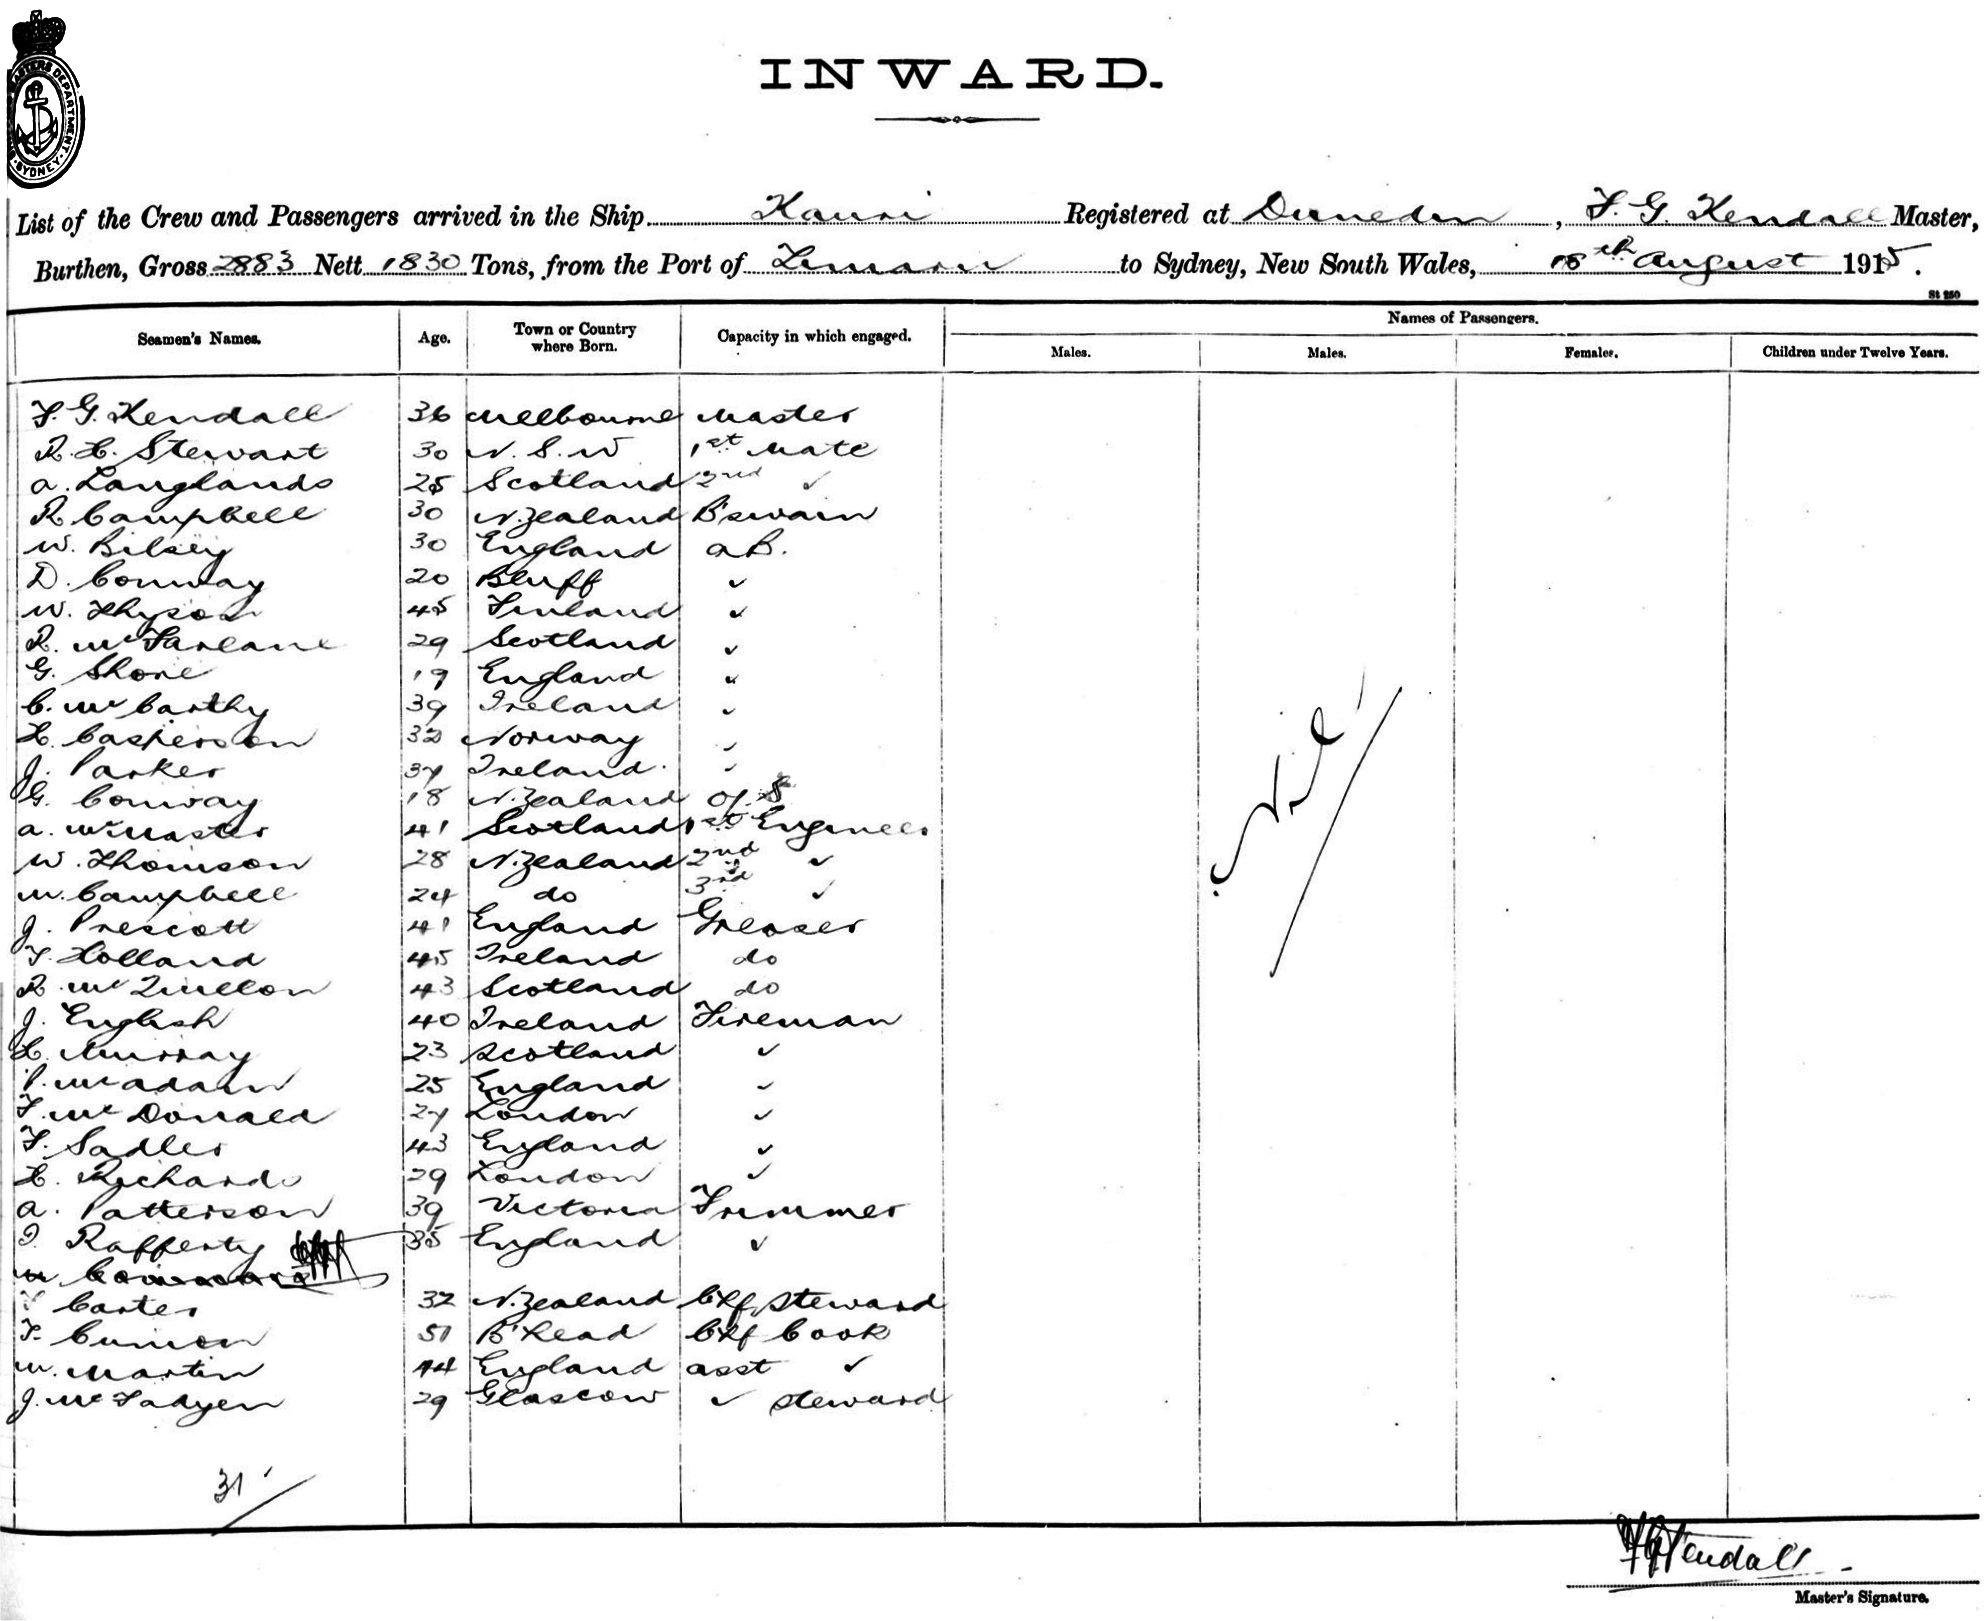 MASTERS DEPARTMENT SYDNEY
INWARD.
List of the Crew and Passengers arrived in the Ship Kauri Registered at Dunedin, F. G. Kendall Master,
Burthen, Gross 2883 Nett 1830 Tons, from the Port of to Sydney, New South Wales, 18th August 1915.
St 250
Seamen's Names. Age. Town or Country where Born. Capacity in which engaged. Names of Passengers.
Males. Males. Females. Children under Twelve Years.
F. G. Kendall 36 Melbourne Master
R. H. Stewart 30 N. S. W 1st Mate
A. Langlands 25 Scotland 2nd "
R Campbell 30 N. Zealand B'swain
W. Bilsey 30 England AB.
D. Conway 20 Bluff "
W. Thyson 45 Finland "
R. McFarlane 29 Scotland "
G. Shore 19 England "
C. McCarthy 39 Ireland "
H. Casperson 32 Norway "
J. Parker 37 Ireland "
G. Conway 18 N. Zealand O. S
A. McMaster 41 Scotland 1st Engineer
W. Thomson 28 N. Zealand 2nd "
W. Campbell 24 do 3rd "
J. Prescott 41 England Greaser
T Holland 45 Ireland do
R McQuillon 43 Scotland do
J. English 40 Ireland Fireman
H. Murray 23 Scotland "
P. McAdam 25 England "
F. McDonald 27 London "
F. Sadler 43 England "
H. Richards 29 London "
A. Patterson 39 Victoria Trimmer
Rafferty 35 England "
Carter 32 N. Zealand Chf Steward
51 B'head Chf Cook
W. Martin 44 England asst "
J. McFadyen 29 Glascow " Steward
Nil
31
F G Kendall
Master's Signature.